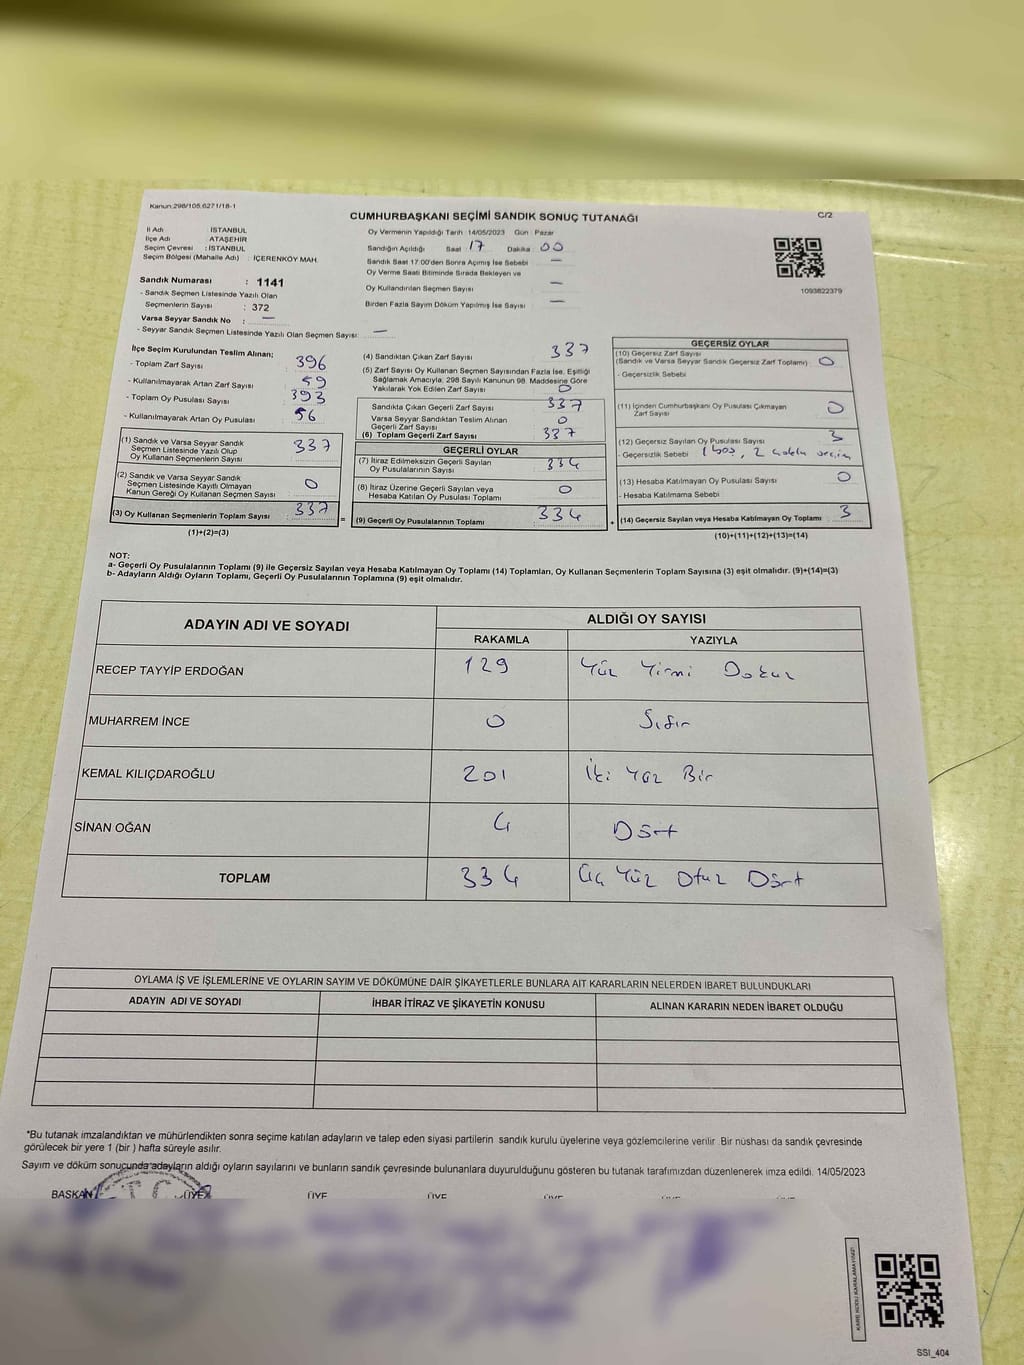 Kanun:298/105,6271/18-1
CUMHURBAŞKANI SEÇİMİ SANDIK SONUÇ TUTANAĞI
C/2
İl Adı : İSTANBUL
İlçe Adı : ATAŞEHİR
Seçim Çevresi : İSTANBUL
Seçim Bölgesi (Mahalle Adı) : İÇERENKÖY MAH.
Sandık Numarası : 1141
- Sandık Seçmen Listesinde Yazılı Olan
Seçmenlerin Sayısı : 372
Varsa Seyyar Sandık No : —
- Seyyar Sandık Seçmen Listesinde Yazılı Olan Seçmen Sayısı: —
Oy Vermenin Yapıldığı Tarih :14/05/2023 Gün : Pazar
Sandığın Açıldığı Saat 17 Dakika 00
Sandık Saat 17:00'den Sonra Açımış İse Sebebi —
Oy Verme Saati Bitiminde Sırada Bekleyen ve
Oy Kullandırılan Seçmen Sayısı —
Birden Fazla Sayım Döküm Yapılmış İse Sayısı —
1093822379
İlçe Seçim Kurulundan Teslim Alınan;
- Toplam Zarf Sayısı : 396
- Kullanılmayarak Artan Zarf Sayısı : 59
- Toplam Oy Pusulası Sayısı : 393
- Kullanılmayarak Artan Oy Pusulası : 56
(1) Sandık ve Varsa Seyyar Sandık
Seçmen Listesinde Yazılı Olup
Oy Kullanan Seçmenlerin Sayısı : 337
(2) Sandık ve Varsa Seyyar Sandık
Seçmen Listesinde Kayıtlı Olmayan
Kanun Gereği Oy Kullanan Seçmen Sayısı : 0
(3) Oy Kullanan Seçmenlerin Toplam Sayısı : 337
(1)+(2)=(3)
(4) Sandıktan Çıkan Zarf Sayısı : 337
(5) Zarf Sayısı Oy Kullanan Seçmen Sayısından Fazla İse, Eşitliği
Sağlamak Amacıyla, 298 Sayılı Kanunun 98. Maddesine Göre
Yakılarak Yok Edilen Zarf Sayısı : 0
Sandıkta Çıkan Geçerli Zarf Sayısı : 337
Varsa Seyyar Sandıktan Teslim Alınan
Geçerli Zarf Sayısı : 0
(6) Toplam Geçerli Zarf Sayısı : 337
GEÇERLİ OYLAR
(7) İtiraz Edilmeksizin Geçerli Sayılan
Oy Pusulalarının Sayısı : 334
(8) İtiraz Üzerine Geçerli Sayılan veya
Hesaba Katılan Oy Pusulası Toplamı : 0
= (9) Geçerli Oy Pusulalarının Toplamı : 334
GEÇERSİZ OYLAR
(10) Geçersiz Zarf Sayısı
(Sandık ve Varsa Seyyar Sandık Geçersiz Zarf Toplamı) : 0
- Geçersizlik Sebebi
(11) İçinden Cumhurbaşkanı Oy Pusulası Çıkmayan
Zarf Sayısı : 0
(12) Geçersiz Sayılan Oy Pusulası Sayısı : 3
- Geçersizlik Sebebi 1 boş, 2 seçim
(13) Hesaba Katılmayan Oy Pusulası Sayısı : 0
- Hesaba Katılmama Sebebi
+ (14) Geçersiz Sayılan veya Hesaba Katılmayan Oy Toplamı : 3
(10)+(11)+(12)+(13)=(14)
NOT:
a- Geçerli Oy Pusulalarının Toplamı (9) ile Geçersiz Sayılan veya Hesaba Katılmayan Oy Toplamı (14) Toplamları, Oy Kullanan Seçmenlerin Toplam Sayısına (3) eşit olmalıdır. (9)+(14)=(3)
b- Adayların Aldığı Oyların Toplamı, Geçerli Oy Pusulalarının Toplamına (9) eşit olmalıdır.
ADAYIN ADI VE SOYADI
ALDIĞI OY SAYISI
RAKAMLA YAZIYLA
RECEP TAYYİP ERDOĞAN 129 Yüz Yirmi Dokuz
MUHARREM İNCE 0 Sıfır
KEMAL KILIÇDAROĞLU 201 İki Yüz Bir
SİNAN OĞAN 4 Dört
TOPLAM 334 Üç Yüz Otuz Dört
OYLAMA İŞ VE İŞLEMLERİNE VE OYLARIN SAYIM VE DÖKÜMÜNE DAİR ŞİKAYETLERLE BUNLARA AİT KARARLARIN NELERDEN İBARET BULUNDUKLARI
ADAYIN ADI VE SOYADI İHBAR İTİRAZ VE ŞİKAYETİN KONUSU ALINAN KARARIN NEDEN İBARET OLDUĞU
*Bu tutanak imzalandıktan ve mühürlendikten sonra seçime katılan adayların ve talep eden siyasi partilerin sandık kurulu üyelerine veya gözlemcilerine verilir .Bir nüshası da sandık çevresinde
görülecek bir yere 1 (bir ) hafta süreyle asılır.
Sayım ve döküm sonucunda adayların aldığı oyların sayılarını ve bunların sandık çevresinde bulunanlara duyurulduğunu gösteren bu tutanak tarafımızdan düzenlenerek imza edildi. 14/05/2023
BAŞKAN ÜYE ÜYE ÜYE ÜYE
T.C.
KARE KODU KARALAMAYINIZ!
SSI_404